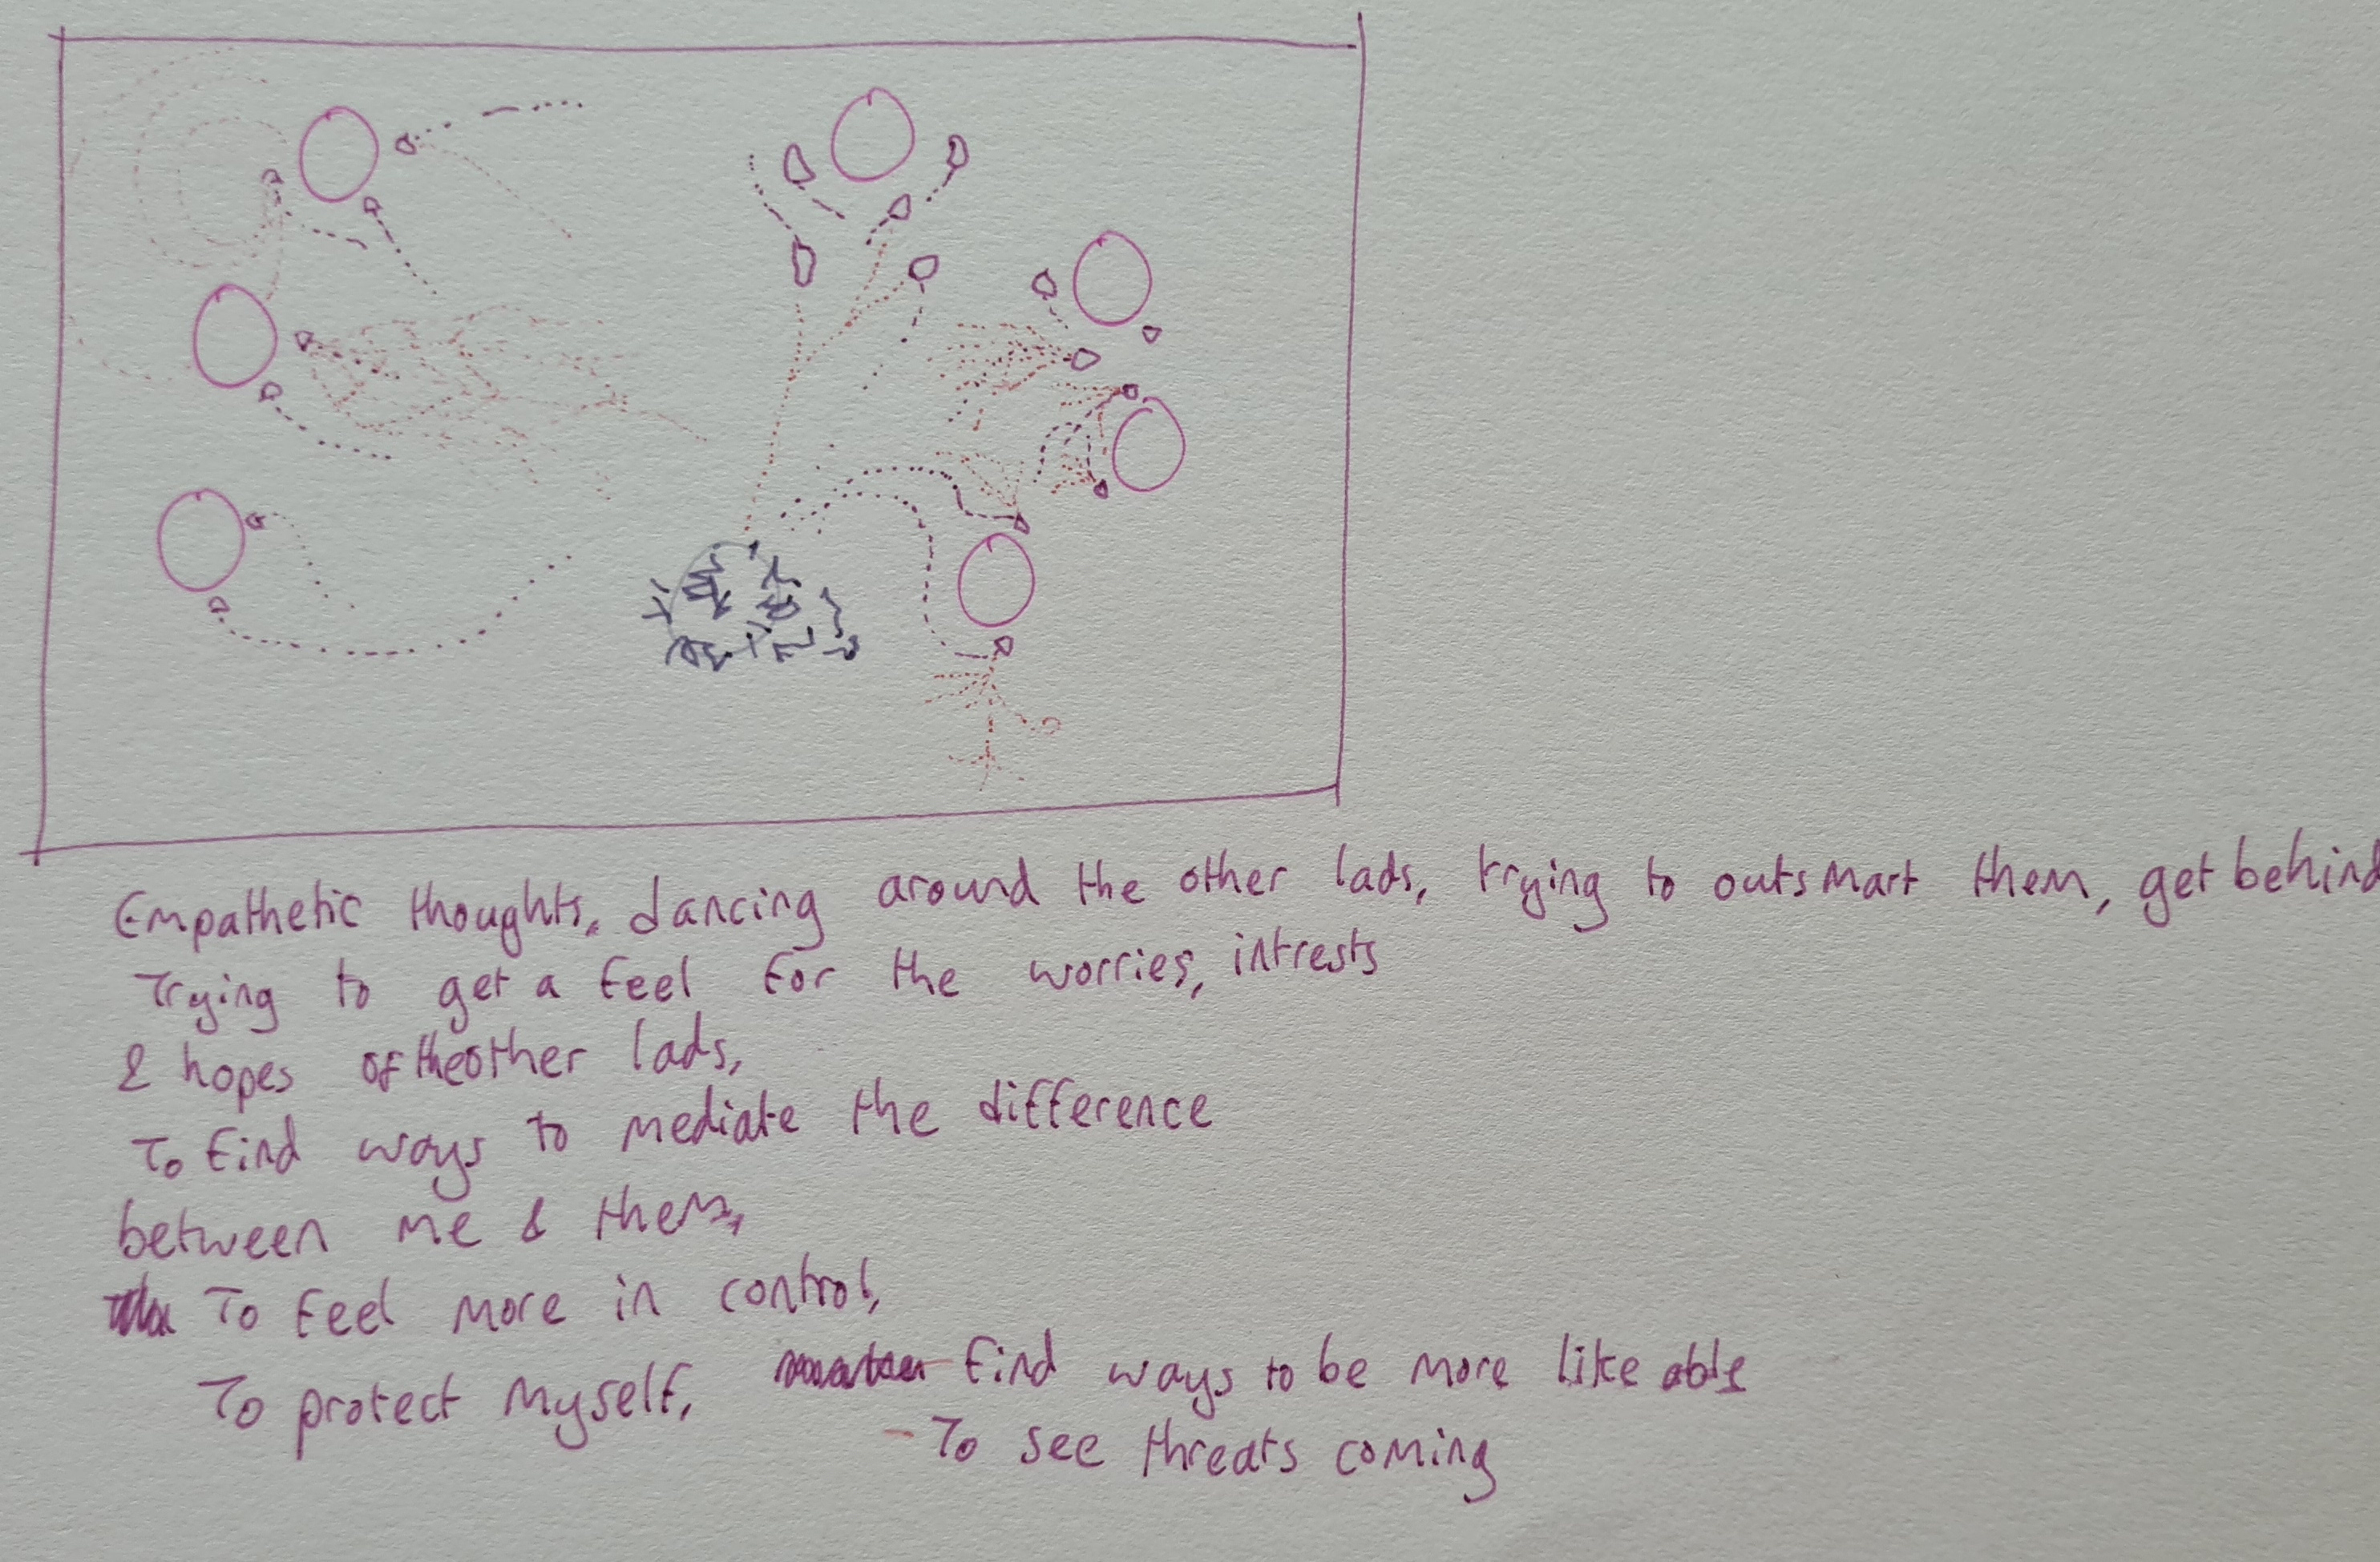 Empathetic thoughts, dancing around the other lads, trying to outsmart them, get behind
Trying to get a feel for the worries, intrests
& hopes of the other lads,
To find ways to mediate the difference
between me & them,
To feel more in control,
To protect myself, find ways to be more likeable
- To see threats coming